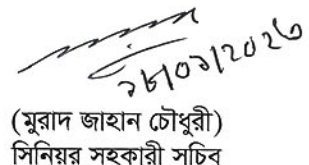 ২৮/০১/২০২৬
(মুরাদ জাহান চৌধুরী)
সিনিয়র সহকারী সচিব